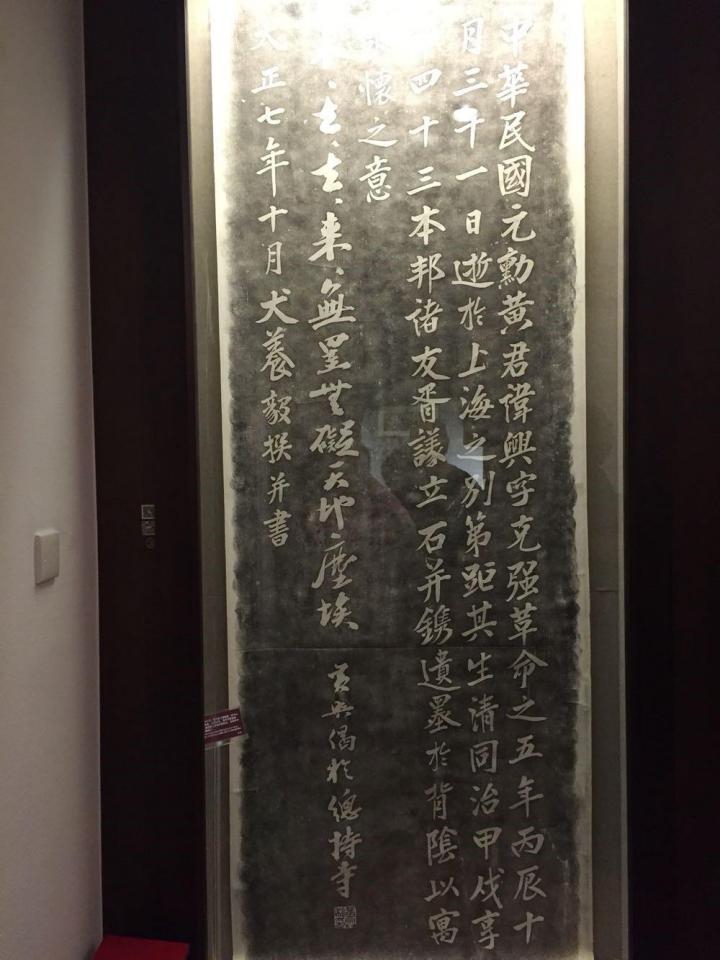 中華民國元勳黃君諱興字克强革命之五年丙辰十
月三十一日逝於上海之別第距其生清同治甲戌享
四十三本邦諸友胥議立石并鐫遺墨於背陰以寓
永懷之意
来、去、去、来、無罣無礙天地、塵埃 黄興偈於總持寺
大正七年十月犬養毅撰并書